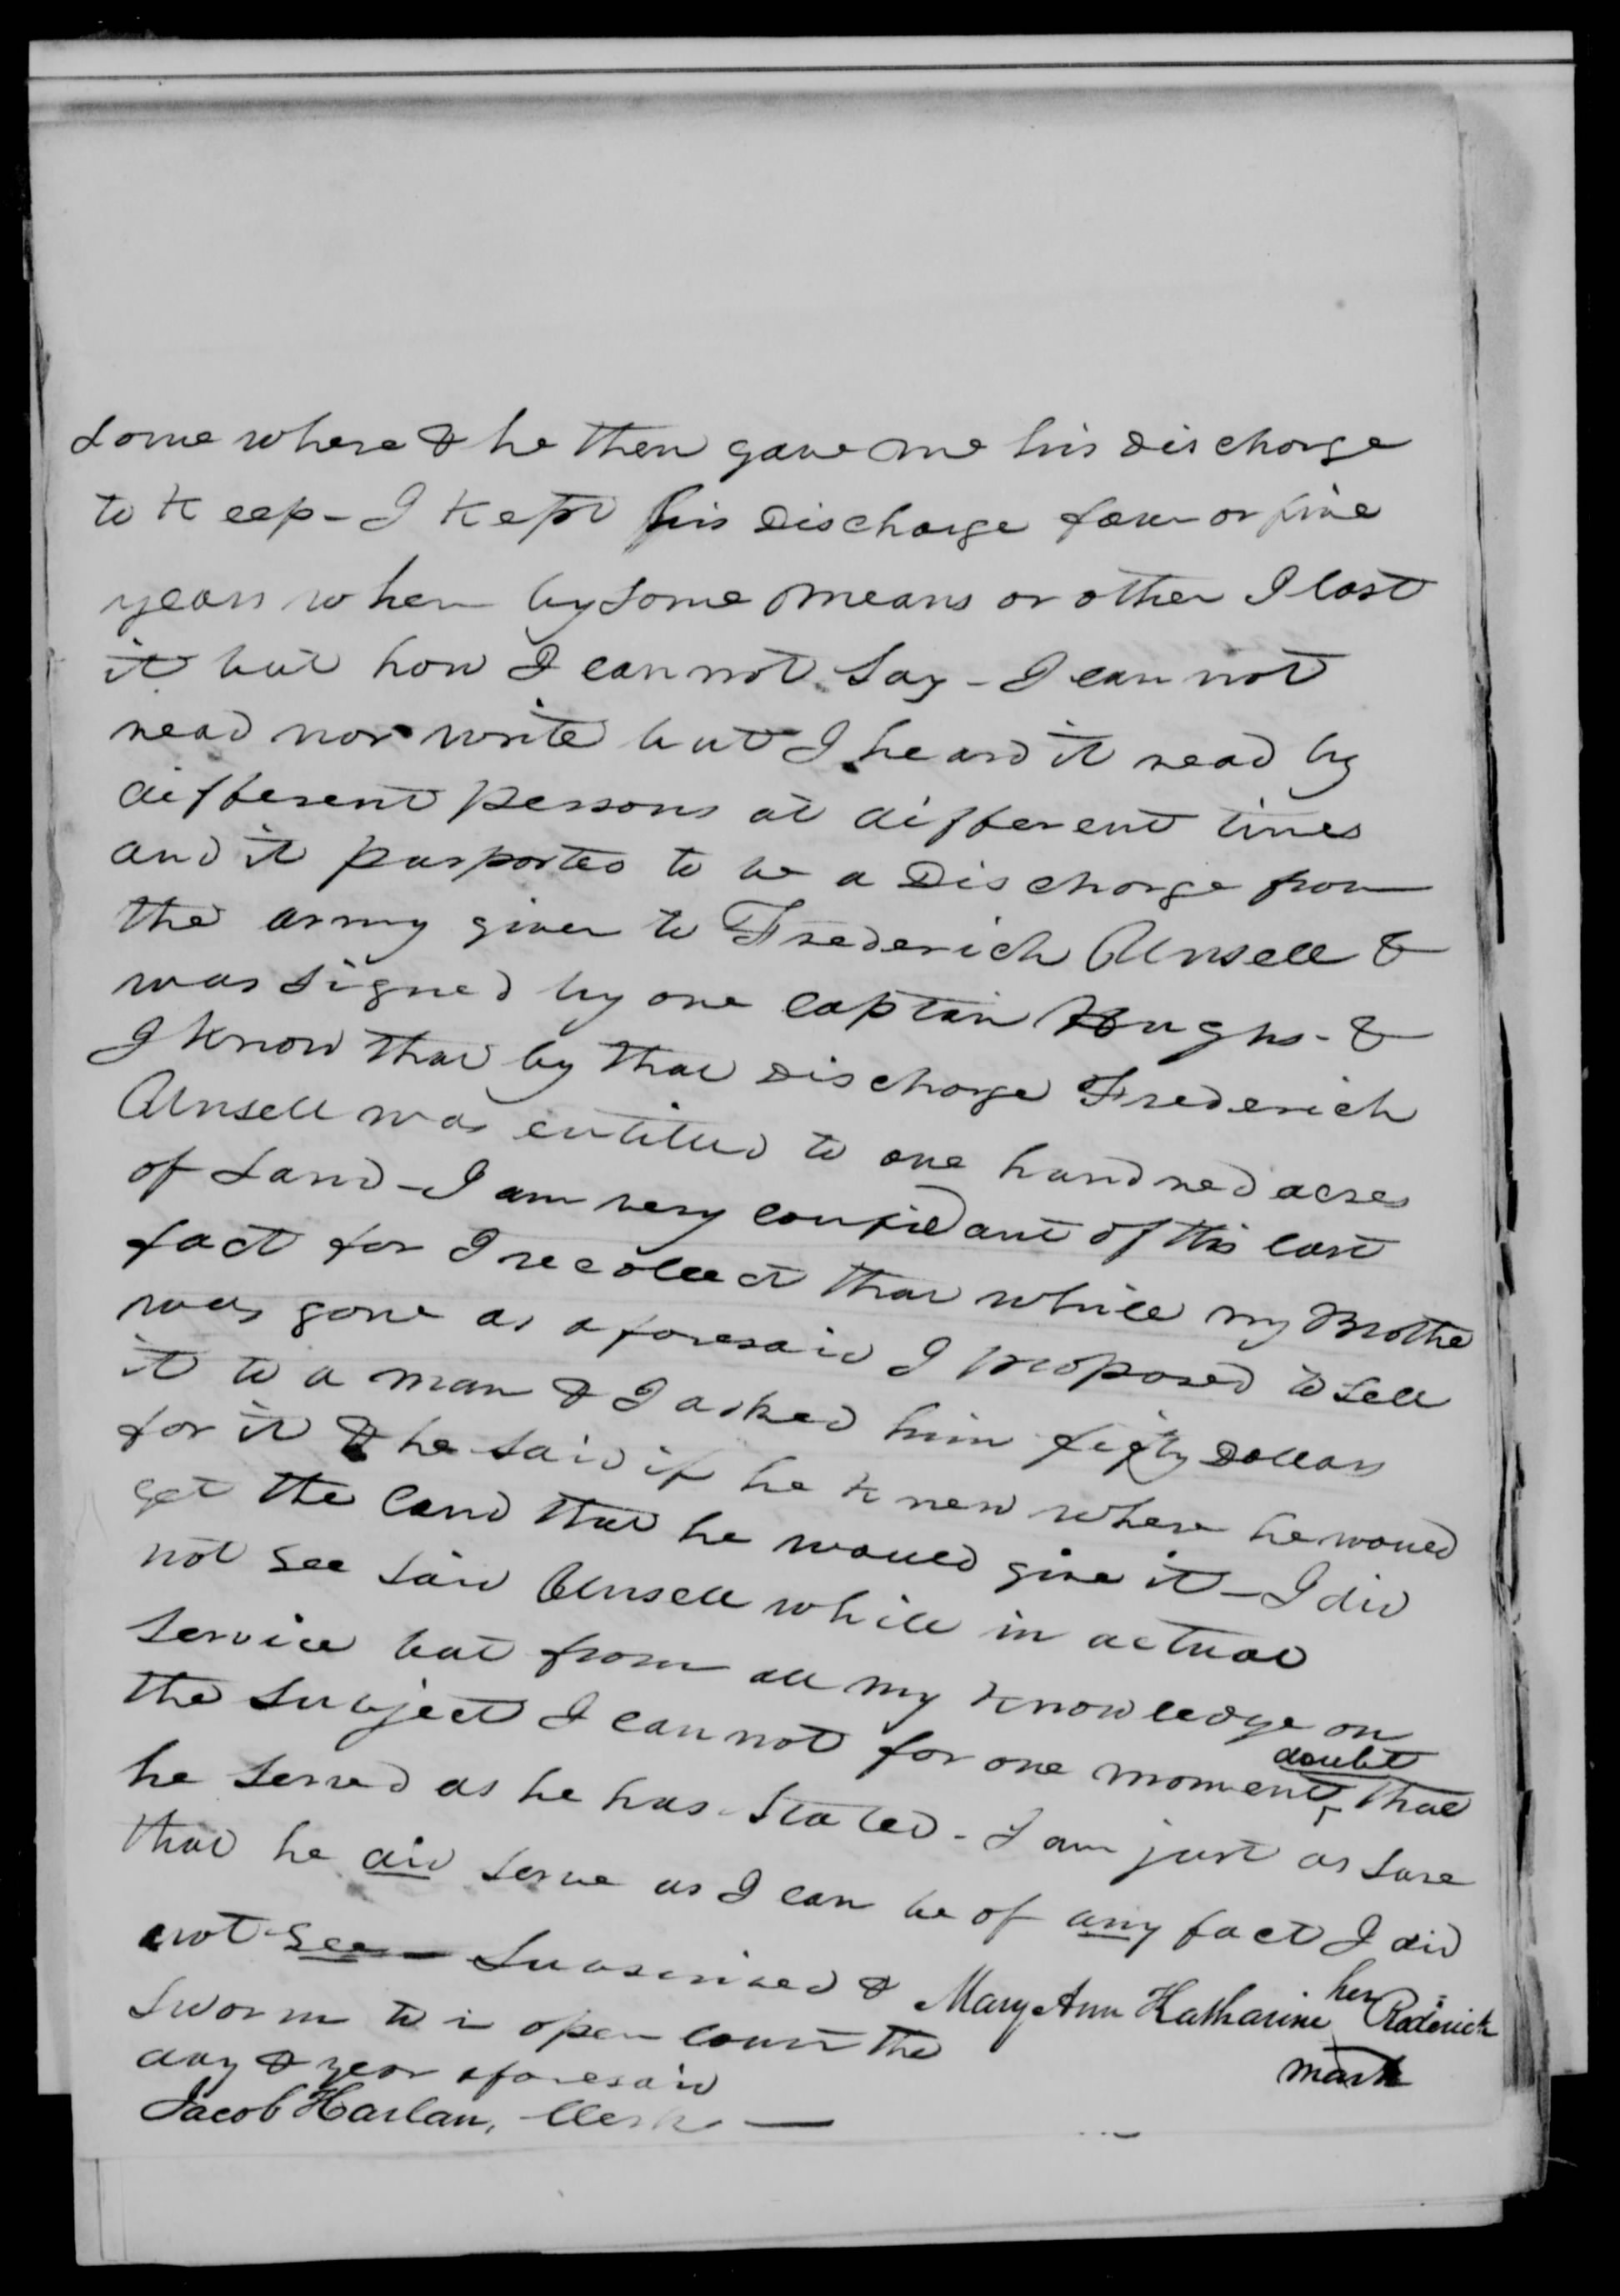 some where & he then gave me his discharge
to Keep - I Kept his Discharge four or five
years when by some means or other I lost
it but how I cannot say - I can not
read nor write but I heard it read by
different persons at different times
and it purported to be a Discharge from
the army given to Frederich Unsell &
was signed by one captain Hughs - &
I know that by that discharge Frederich
Unsell was entitled to one hundred acres
of Land - I am very confidant of this last
fact for I recollect that while my Brothe
was gone as aforesaid I proposed to sell
it to a man & I asked him fifty Dollars
for it & he said if he knew where he would
get the land that he would give it - I did
not see said Unsell while in actual
service but from all my knowledge on
the subject I cannot for one moment doubt that
he served as he has stated - I am just as sure
that he did serve as I can be of any fact I did
not see - Subscribed & Mary Ann Katharine her Roderick
sworn to in open court the
mark
day & year aforesaid
Jacob Harlan, Clerk